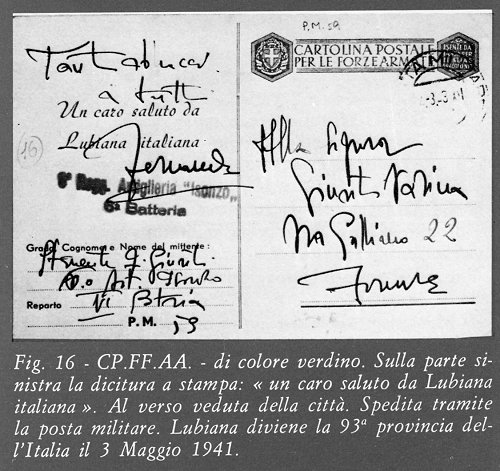 P.M. 59
CARTOLINA POSTALE
PER LE FORZE ARM
ESENTE DA
Tanti
a tutti
Un caro saluto da
Lubiana italiana
16
6º Regg. Artiglieria "Isonzo"
6ª Batteria
Alla Signora
Via Galliano 22
Firenze
Grado, Cognome e Nome del mittente:
Reparto
P.M. 59
Fig. 16 - CP.FF.AA. - di colore verdino. Sulla parte si-
nistra la dicitura a stampa: « un caro saluto da Lubiana
italiana ». Al verso veduta della città. Spedita tramite
la posta militare. Lubiana diviene la 93ª provincia del-
l'Italia il 3 Maggio 1941.